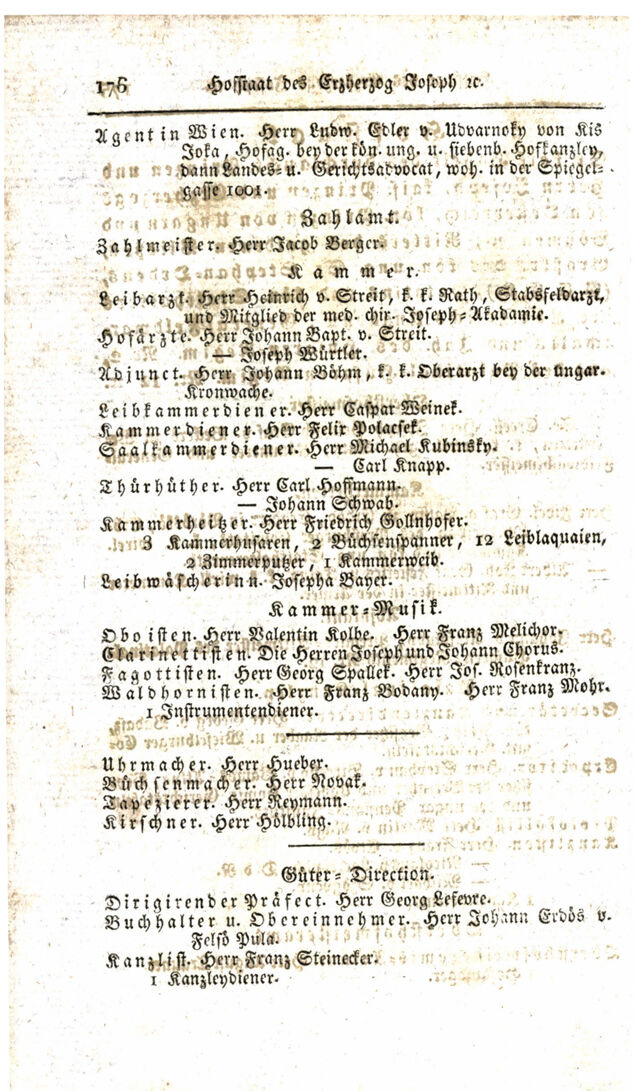 176 Hofstaat des Erzherzog Joseph ꝛc.
Agent in Wien. Herr Ludw. Edler v. Udvarnoky von Kis
Joka, Hofag. bey der kön. ung. u. siebenb. Hofkanzley,
dann Landes- u. Gerichtsadvocat, woh. in der Spiegel-
gasse 1001.
Zahlamt.
Zahlmeister. Herr Jacob Berger.
Kammer.
Leibarzt. Herr Heinrich v. Streit, k. k. Rath, Stabsfeldarzt,
und Mitglied der med. chir. Joseph-Akadamie.
Hofärzte. Herr Johann Bapt. v. Streit.
— Joseph Würtler.
Adjunct. Herr Johann Böhm, k. k. Oberarzt bey der ungar.
Kronwache.
Leibkammerdiener. Herr Caspar Weinek.
Kammerdiener. Herr Felix Polacsek.
Saalkammerdiener. Herr Michael Kubinsky.
— Carl Knapp.
Thürhüther. Herr Carl Hoffmann.
— Johann Schwab.
Kammerheitzer. Herr Friedrich Gollnhofer.
3 Kammerhusaren, 2 Büchsenspanner, 12 Leiblaquaien,
2 Zimmerputzer, 1 Kammerweib.
Leibwäscherinn. Josepha Bayer.
Kammer-Musik.
Oboisten. Herr Valentin Kolbe. Herr Franz Melichor.
Clarinettisten. Die Herren Joseph und Johann Chorus.
Fagottisten. Herr Georg Spallek. Herr Jos. Rosenkranz.
Waldhornisten. Herr Franz Bodany. Herr Franz Mohr.
1 Instrumentendiener.
Uhrmacher. Herr Hueber.
Büchsenmacher. Herr Novak.
Tapezierer. Herr Reymann.
Kirschner. Herr Hölbling.
Güter-Direction.
Dirigirender Präfect. Herr Georg Lefevre.
Buchhalter u. Obereinnehmer. Herr Johann Erdös v.
Felsö Pula.
Kanzlist. Herr Franz Steinecker.
1 Kanzleydiener.